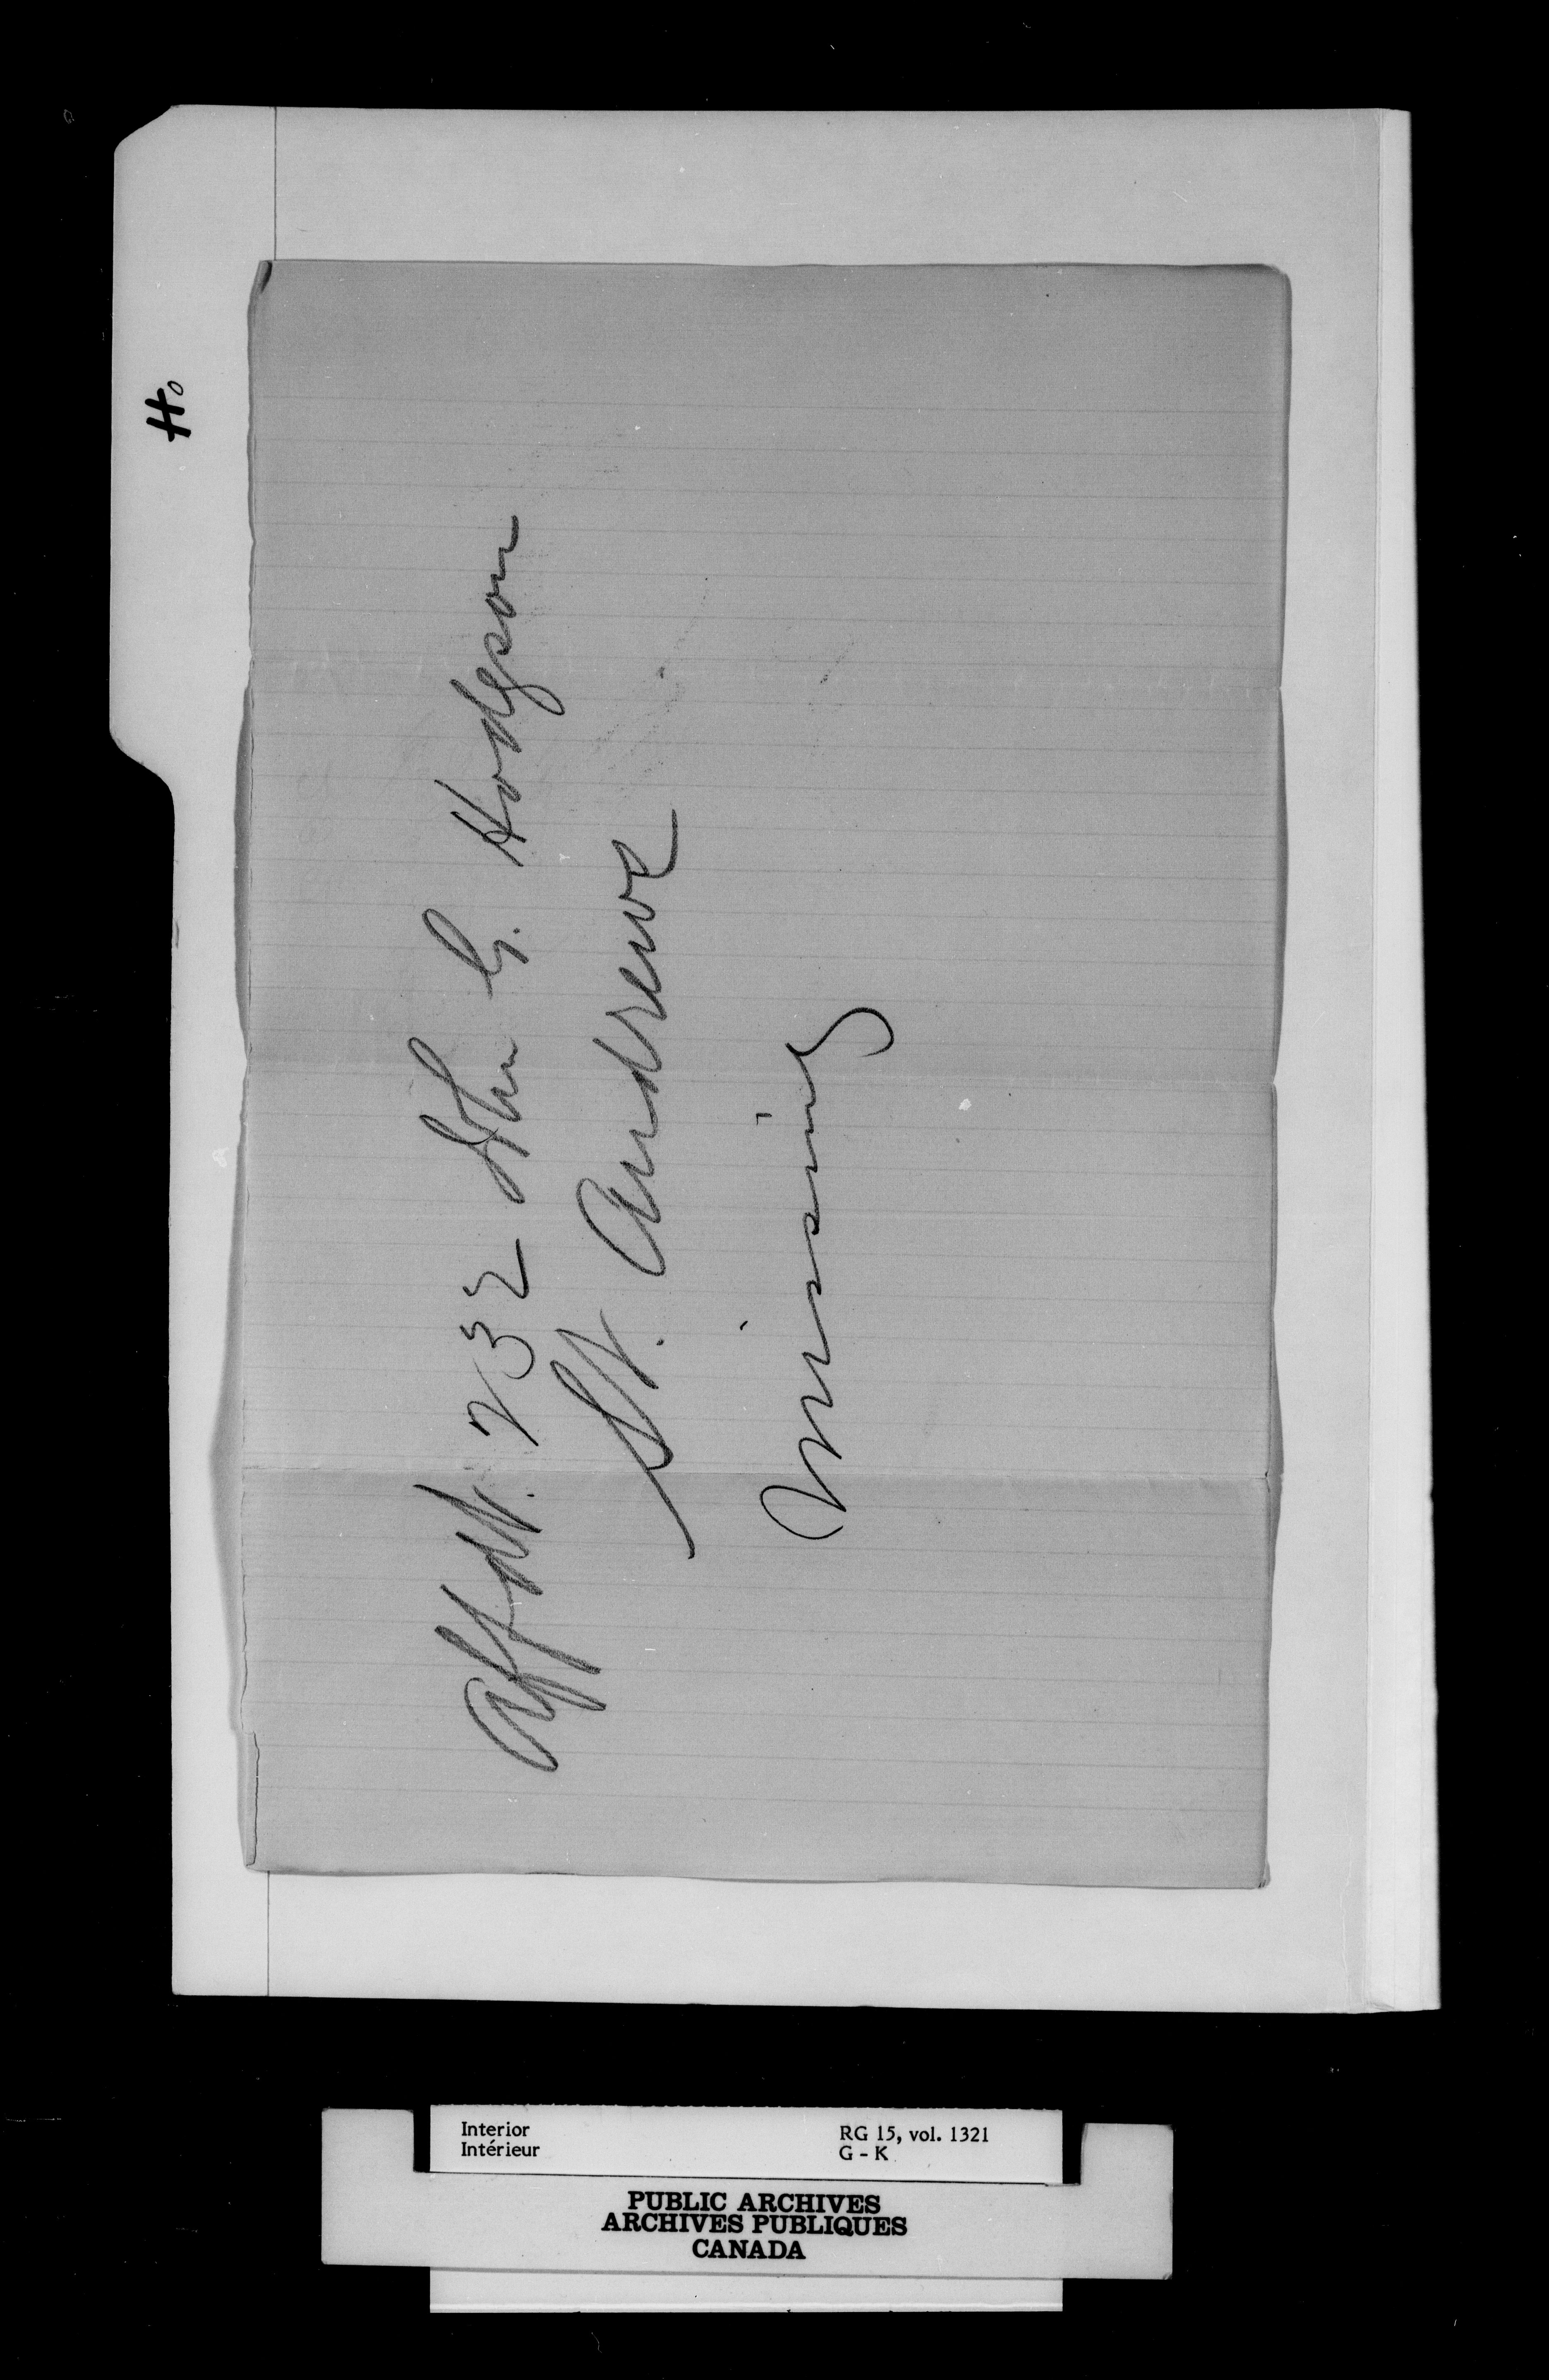 Ho
Affdt. 232 John G. Hodgson
St. Andrews
Missing
Interior
Intérieur
RG 15, vol. 1321
G - K
PUBLIC ARCHIVES
ARCHIVES PUBLIQUES
CANADA